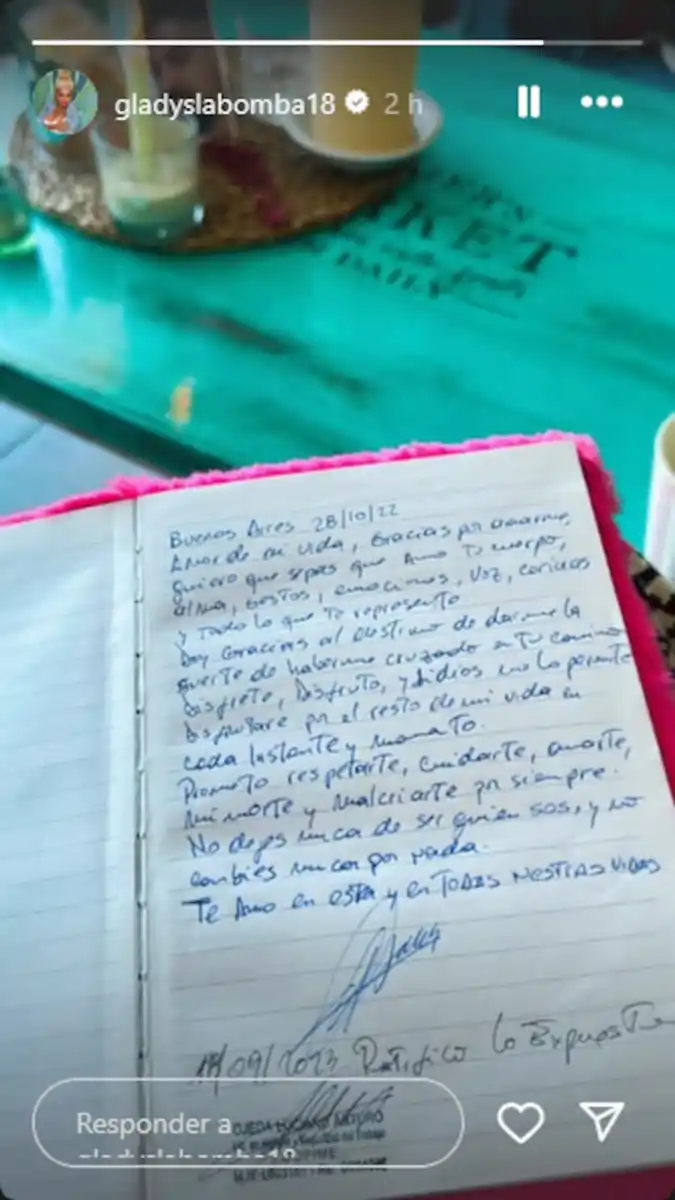 gladyslabomba18 2 h
KET
DAILY
Buenos Aires 28/10/22
Amor de mi vida, Gracias por amarme,
quiero que sepas que Amo tu cuerpo,
alma, Gestos, emociones, Voz, caricias
y Todo lo que Te representa
Doy Gracias al destino de darme la
suerte de haberme cruzado en Tu camino
Disfrete, Disfruto, y si dios me lo permite
disfrutare por el resto de mi vida en
cada Instante y momento.
Prometo respetarte, cuidarte, amarte,
Mimarte y Malcriarte por siempre.
No dejes nunca de ser quien sos, y no
cambies nunca por nada.
Te Amo en esta y en TODAS NUESTRAS VIDAS
/09/2023 Ratifico lo Expuesto
OJEDA LUCIANO ARTURO
Responder a
gladyslabomba18